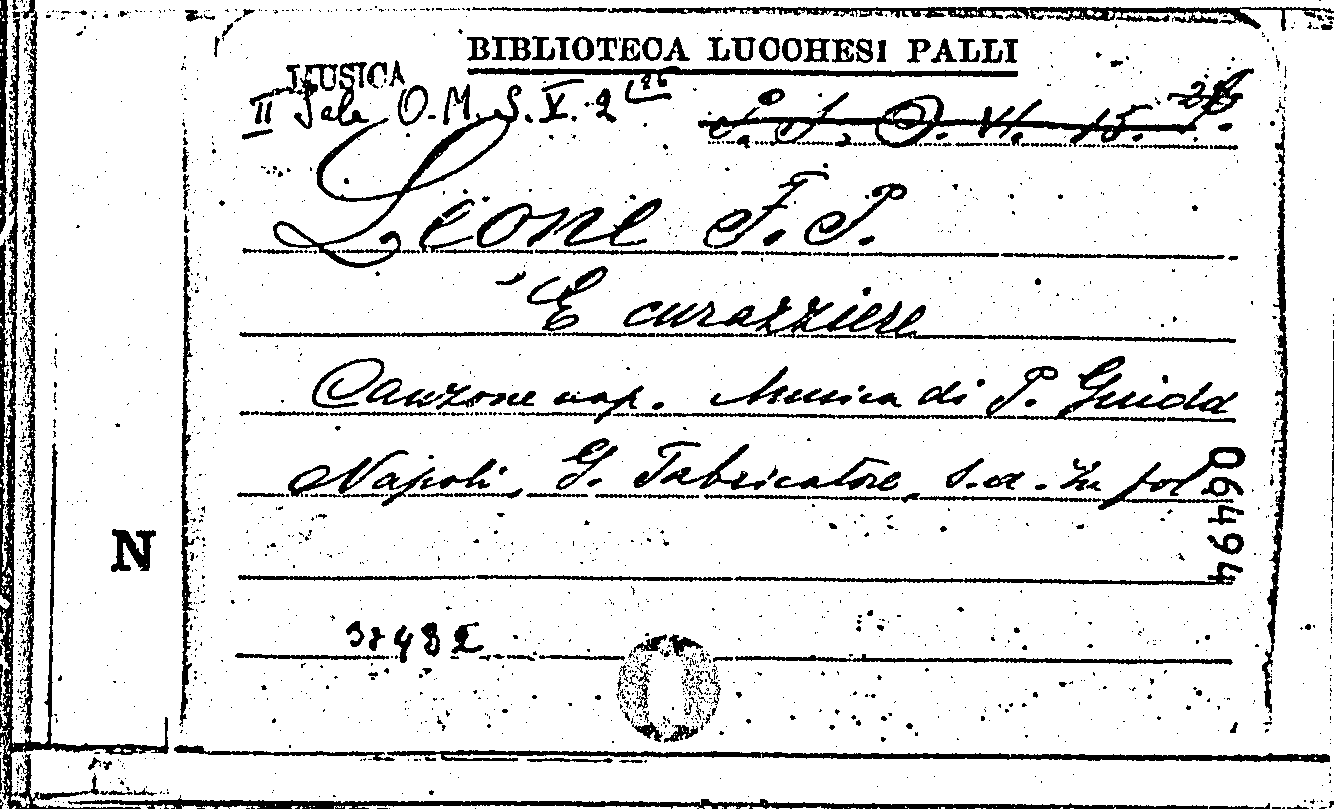 BIBLIOTECA LUCCHESI PALLI
MUSICA
II Sala O. M. S. X. 2 (26
Leone F. P.
'E curazziere
Canzone nap. Musica di P. Guida
Napoli, G. Fabricatore, s.a. in fol
06494
N